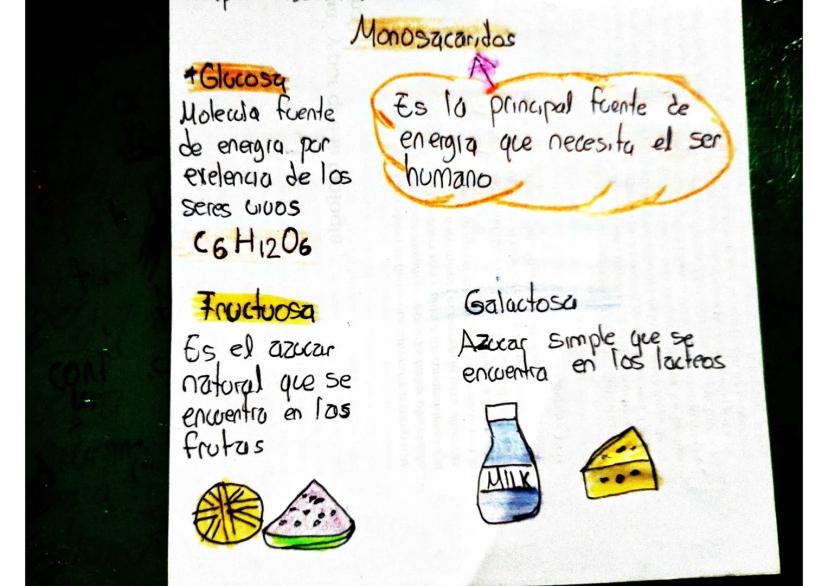 Monosacaridos
*Glucosa
Molecula fuente
de energia por
exelencia de los
seres vivos
C6H12O6
Es la principal fuente de
energia que necesita el ser
humano
Fructuosa
Es el azucar
natural que se
encuentra en las
frutas
Galactosa
Azucar simple que se
encuentra en los lacteos
MILK